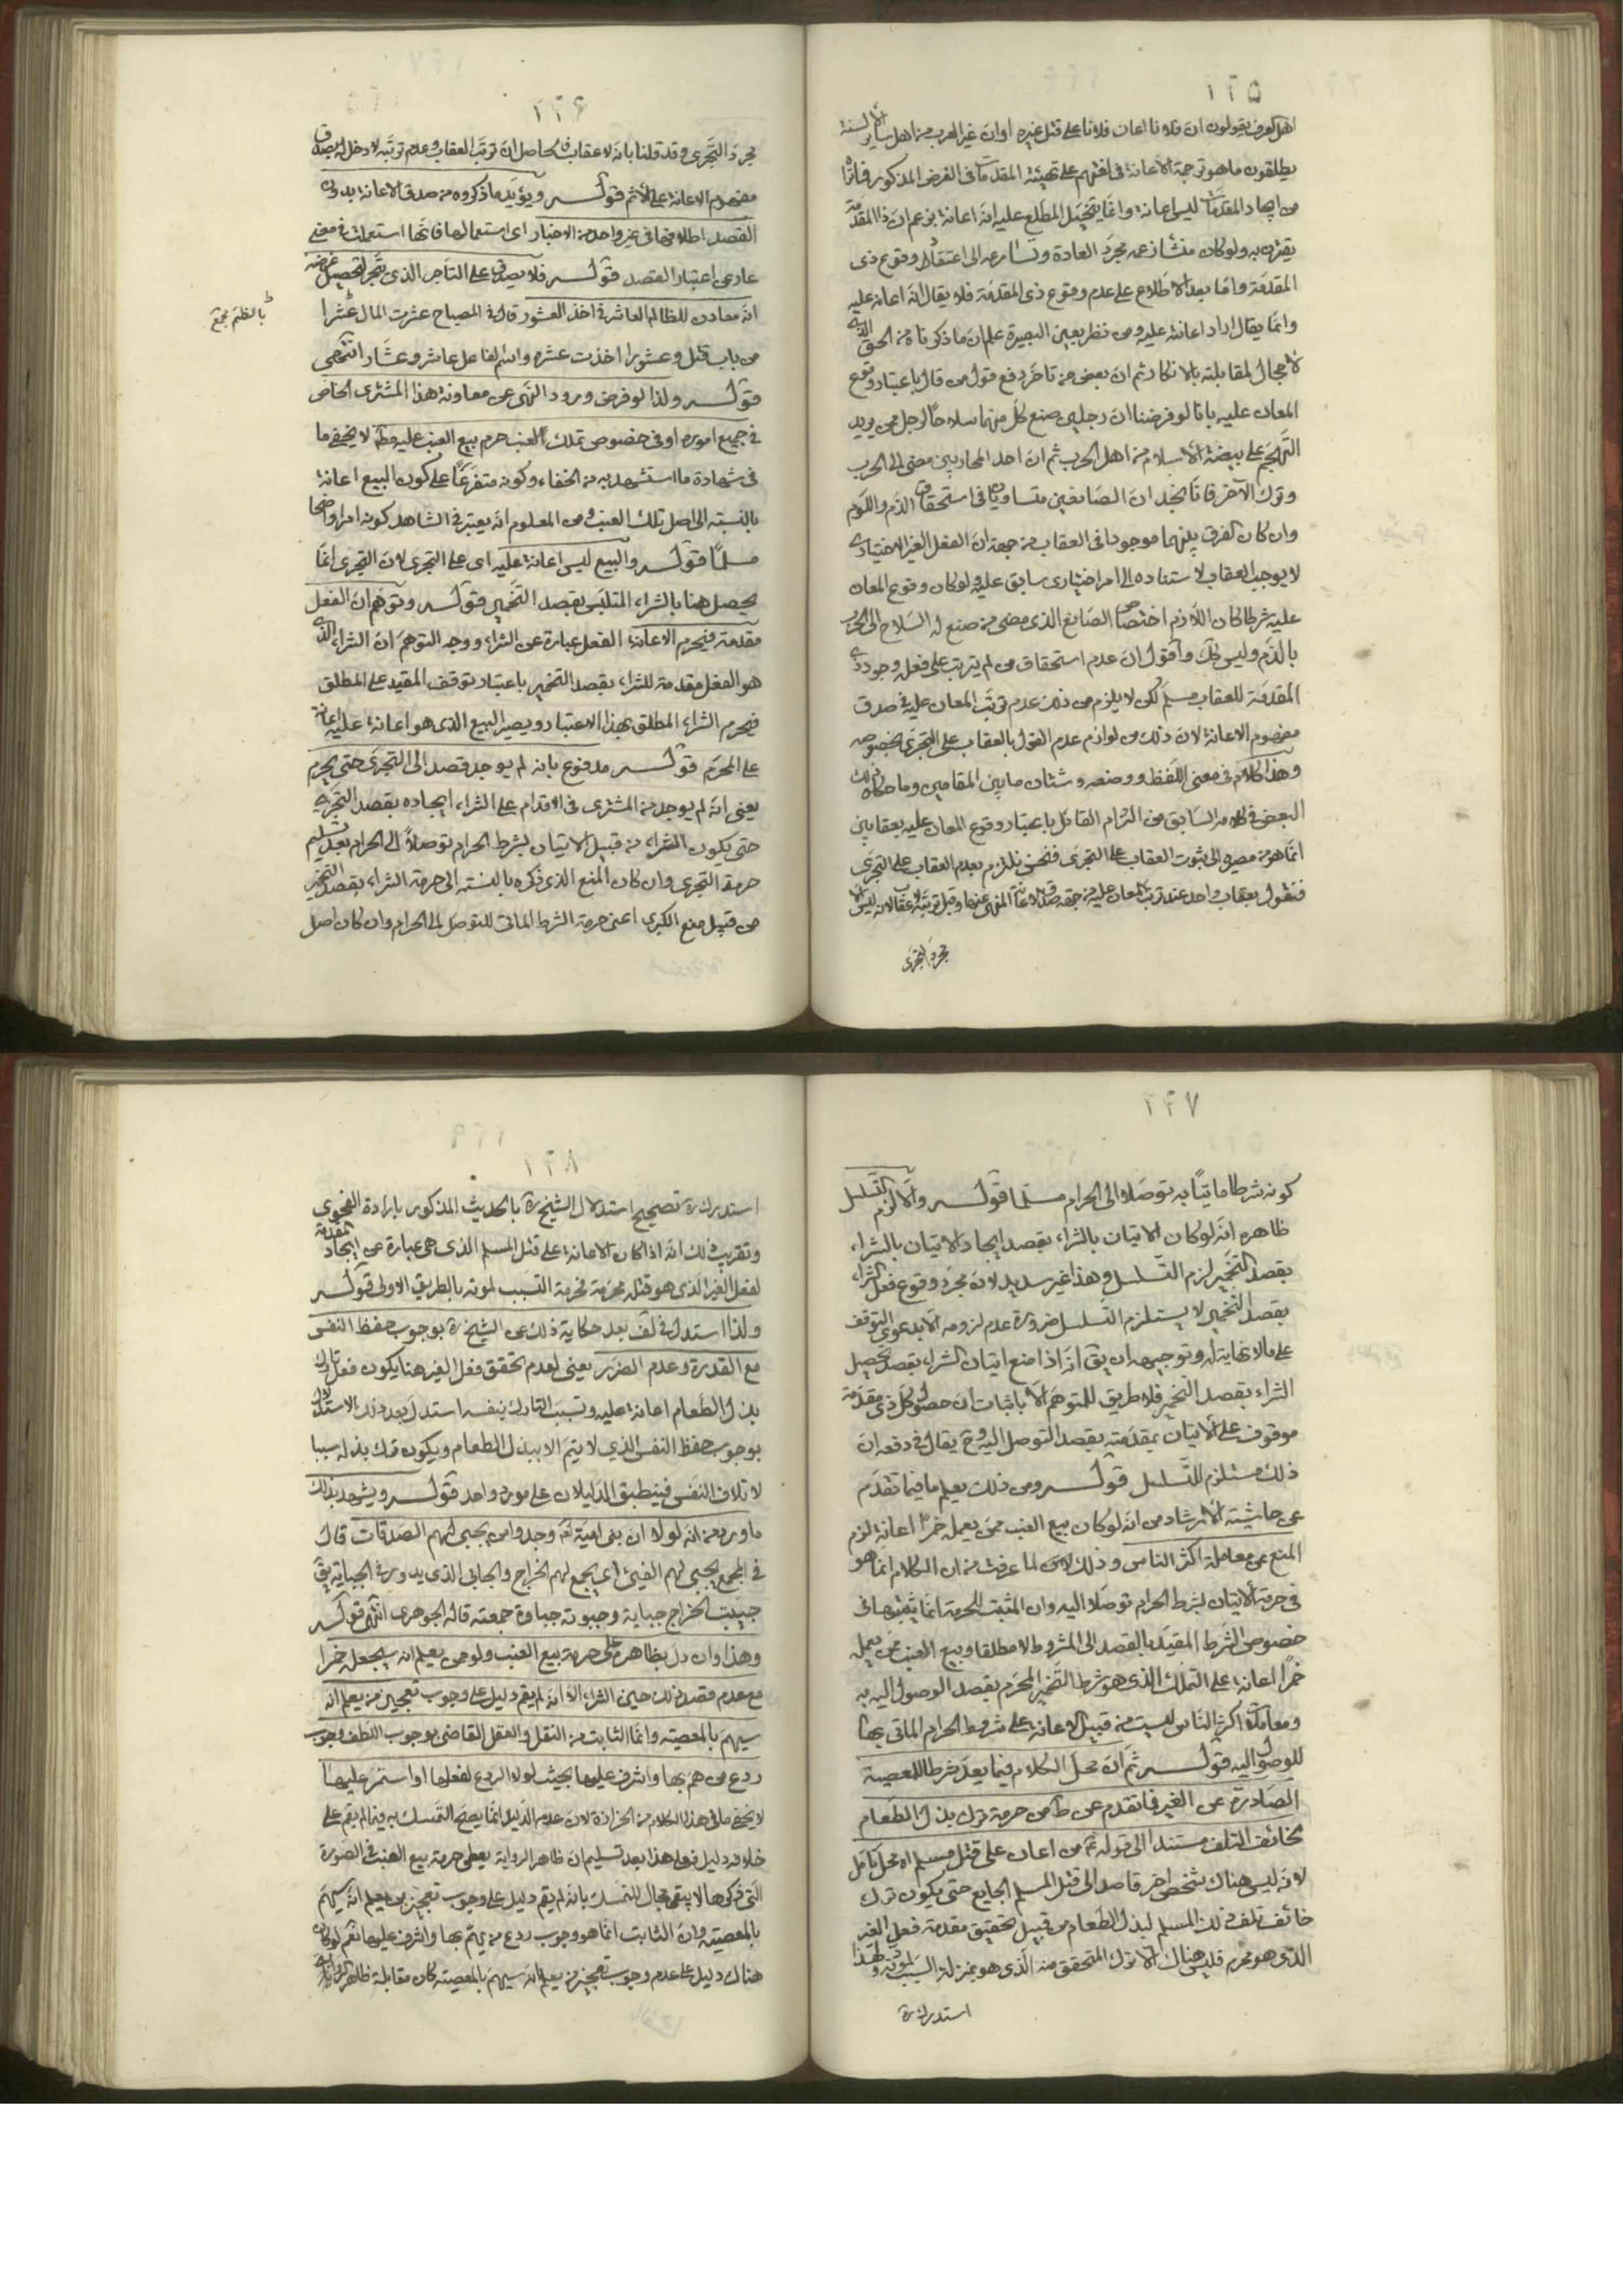 ١٢٥
اهل العرف يقولون ان فلانا اعان فلانا على قتل غيره او ان غير العرب من اهل ساير الالسنة
يطلقون ما هو ترجمة الاعانة في لغتهم على تهيئة المقدمات في الفرض المذكور فانّا
من ايجاد المقدمات ليس اعانة وانما يتخيل المطلع عليه انه اعانة بزعم ان ذا المقدمة
يقترن به ولو كان منشأ زعمه مجرد العادة وتسارعه الى اعتقاد وقوع ذى
المقدمة واما بعد الاطلاع على عدم وقوع ذى المقدمة فلا يقال انه اعانه عليه
وانما يقال اراد اعانته عليه ومن نظر بعين البصيرة علم ان ما ذكرناه من الحق الذى
لا مجال لمقابلته بالانكار ثم ان بعض من تاخر دفع قول من قال باعتبار وقوع
المعان عليه بانا لو فرضنا ان رجلين صنع كل منهما سلاحًا لرجل ممن يريد
التهجم على بيضة الاسلام من اهل الحرب ثم ان احد المحاربين مضى الى الحرب
وترك الآخر فانا نجد ان الصانعين متساويان في استحقاق الذم واللوم
وان كان الفرق بينهما موجودا في العقاب من جهة ان الفعل الغير الاختيارى
لا يوجب العقاب لاستناده الى امر اختيارى سابق عليه ولو كان وقوع المعان
عليه شرطا كان اللازم اختصاص الصانع الذى مضى من صنع له السلاح الى الحرب
بالذم وليس كك واقول ان عدم استحقاق من لم يترتب على فعله وجود ذى
المقدمة للعقاب مسلم لكن لا يلزم من ذلك عدم ترتب المعان عليه في صدق
مفهوم الاعانة لان ذلك من لوازم عدم القول بالعقاب على التجرى بخصوصه
وهذا كلام في معنى اللفظ ووضعه وشتان ما بين المقامين وما حكاه ذلك
البعض في كلامه السابق من التزام القائل باعتبار وقوع المعان عليه بعقابين
انما هو من مصيره الى ثبوت العقاب على التجرى فنحن نلتزم بعدم العقاب على التجرى
فنقول بعقاب واحد عند ترتب المعان عليه من جهة صدق الاعانة المنهى عنها وقبل ترتبه لا عقاب لانه ليس الا
مجرد التجرى
١٢۶
مجرد التجرى وقد قلنا بانه لا عقاب فالحاصل ان ترتب العقاب وعدم ترتبه لا دخل له بصدق
مفهوم الاعانة على الاثم قوله ويؤيد ما ذكروه من صدق الاعانة بدون
القصد اطلاقها في غير واحد من الاخبار اى استعمالها فانها استعملت في معنى
عار عن اعتبار القصد قوله فلا يصدق على التاجر الذى يتجر لتحصيل غرضه
انه معاون للظالم العاشر في اخذ العشور قال في المصباح عشرت المال عشرا
من باب قتل وعشورا اخذت عشره واسم الفاعل عاشر وعشّار انتهى
قوله ولذا لو فرض ورود النهى عن معاونة هذا المشترى الخاص
في جميع اموره او في خصوص تملك العنب حرم بيع العنب عليه مط لا يخفى ما
في شهادة ما استشهد به من الخفاء وكونه متفرعًا على كون البيع اعانة
بالنسبة الى اصل تملك العنب ومن المعلوم انه يعتبر في الشاهد كونه امرا واضحا
مسلمًا قوله والبيع ليس اعانة عليه اى على التجرى لان التجرى انما
يحصل هنا بالشراء المتلبس بقصد التخمير قوله وتوهم ان الفعل
مقدمة فيحرم الاعانة الفعل عبارة عن الشراء ووجه التوهم ان الشراء الذى
هو الفعل مقدمة للشراء بقصد التخمير باعتبار توقف المقيد على المطلق
فيحرم الشراء المطلق بهذا الاعتبار ويصير البيع الذى هو اعانة عليه اعانة
على المحرم قوله مدفوع بانه لم يوجد قصد الى التجرى حتى يحرم
يعنى انه لم يوجد من المشترى في الاقدام على الشراء ايجاده بقصد التجرى
حتى يكون الشراء من قبيل الاتيان بشرط الحرام توصلاً الى الحرام بعد تسليم
حرمة التجرى وان كان المنع الذى ذكره بالنسبة الى حرمة الشراء بقصد التخمير
من قبيل منع الكبرى اعنى حرمة الشرط الماتى للتوصل الى الحرام وان كان اصل
١٢٧
كونه شرطا ماتيًا به توصلا الى الحرام مسلمًا قوله والا لزم التسلسل
ظاهره انه لو كان الاتيان بالشراء بقصد ايجاد الاتيان بالشراء
بقصد التخمير لزم التسلسل وهذا غير سديد لان مجرد وقوع فعل الشراء
بقصد التخمير لا يستلزم التسلسل ضرورة عدم لزومه الا بدعوى التوقف
على ما لا نهاية له وتوجيهه ان يق انه اذا منع اتيان الشراء بقصد تحصيل
الشراء بقصد التخمير فلا طريق للمتوهم الا باثبات ان حصول كل ذى مقدمة
موقوف على الاتيان بمقدمته بقصد التوصل اليه وح يقال في دفعه ان
ذلك مستلزم للتسلسل قوله ومن ذلك يعلم ما فيما تقدم
عن حاشية الارشاد من انه لو كان بيع العنب ممن يعمله خمرًا اعانة لزم
المنع عن معاملة اكثر الناس وذلك لما عرفت من ان الكلام انما هو
في حرمة الاتيان بشرط الحرام توصلا اليه وان المثبت للحرمة انما يثبتها في
خصوص الشرط المقيد بالقصد الى المشروط لا مطلقا وبيع العنب ممن يعمله
خمرًا اعانة على التملك الذى هو شرط التخمير المحرم بقصد الوصول اليه به
ومعاملة اكثر الناس ليست من قبيل الاعانة على شروط الحرام الماتى بها
للوصول اليه قوله ثم ان محل الكلام فيما يعد شرطا للمعصية
الصادرة عن الغير فما تقدم عن ط من حرمة ترك بذل الطعام
لخائف التلف مستندا الى قوله ع من اعان على قتل مسلم اه محل تامل
لانه ليس هناك شخص اخر قاصد الى قتل المسلم الجايع حتى يكون ترك
خائف تلف ذلك المسلم لبذل الطعام من قبيل تحقيق مقدمة فعل الغير
الذى هو محرم فليس هناك الا ترك المتحقق منه الذى هو بمنزلة السبب لموته ولهذا
استدرك ره
١٢٨
استدرك ره تصحيح استدلال الشيخ ره بالحديث المذكور بارادة الفحوى
وتقريب ذلك انه اذا كان الاعانة على قتل المسلم الذى هى عبارة عن ايجاد مقدمة
لفعل الغير الذى هو قتله محرمة فحرمة التسبب لموته بالطريق الاولى قوله
ولذا استدل في لف بعد حكاية ذلك عن الشيخ ره بوجوب حفظ النفس
مع القدرة وعدم الضرر يعنى لعدم تحقق فعل الغير هنا يكون فعل تارك
بذل الطعام اعانة عليه وتسبب التارك بنفسه استدل بعد ذلك الاستدلال
بوجوب حفظ النفس الذي لا يتم الا ببذل الطعام ويكون ترك بذله سببا
لاتلاف النفس فينطبق الدليلان على مورد واحد قوله ويشهد بذلك
ما ورد من انه لولا ان بنى امية لعن وجدوا من يجبى لهم الصدقات قال
في المجمع يجبى لهم الفيئ اى يجمع لهم الخراج والجابى الذى يدور في الجباية يق
جبيت الخراج جباية وجبوته جباوة جمعته قاله الجوهرى انتهى قوله
وهذا وان دل بظاهره على حرمة بيع العنب ولو ممن يعلم انه سيجعله خمرا
مع عدم قصد ذلك حين الشراء الا انه لم يقم دليل على وجوب تعجيز من يعلم انه
سيهم بالمعصية وانما الثابت من النقل والعقل القاضى بوجوب اللطف وجوب
ردع من هم بها واشرف عليها بحيث لولا الردع لفعلها او استمر عليها
لا يخفى ما في هذا الكلام من الحزازة لان عدم الدليل انما يصح التمسك به فيما لم يقم على
خلافه دليل فعلى هذا بعد تسليم ان ظاهر الرواية يعطى حرمة بيع العنب في الصورة
التى ذكرها لا يبقى مجال للتمسك بانه لم يقم دليل على وجوب تعجيز من يعلم انه سيهم
بالمعصية وان الثابت انما هو وجوب ردع من يهم بها واشرف عليها نعم لو كان
هناك دليل على عدم وجوب تعجيز من يعلم انه سيهم بالمعصية كان مقابلة ظاهر الرواية